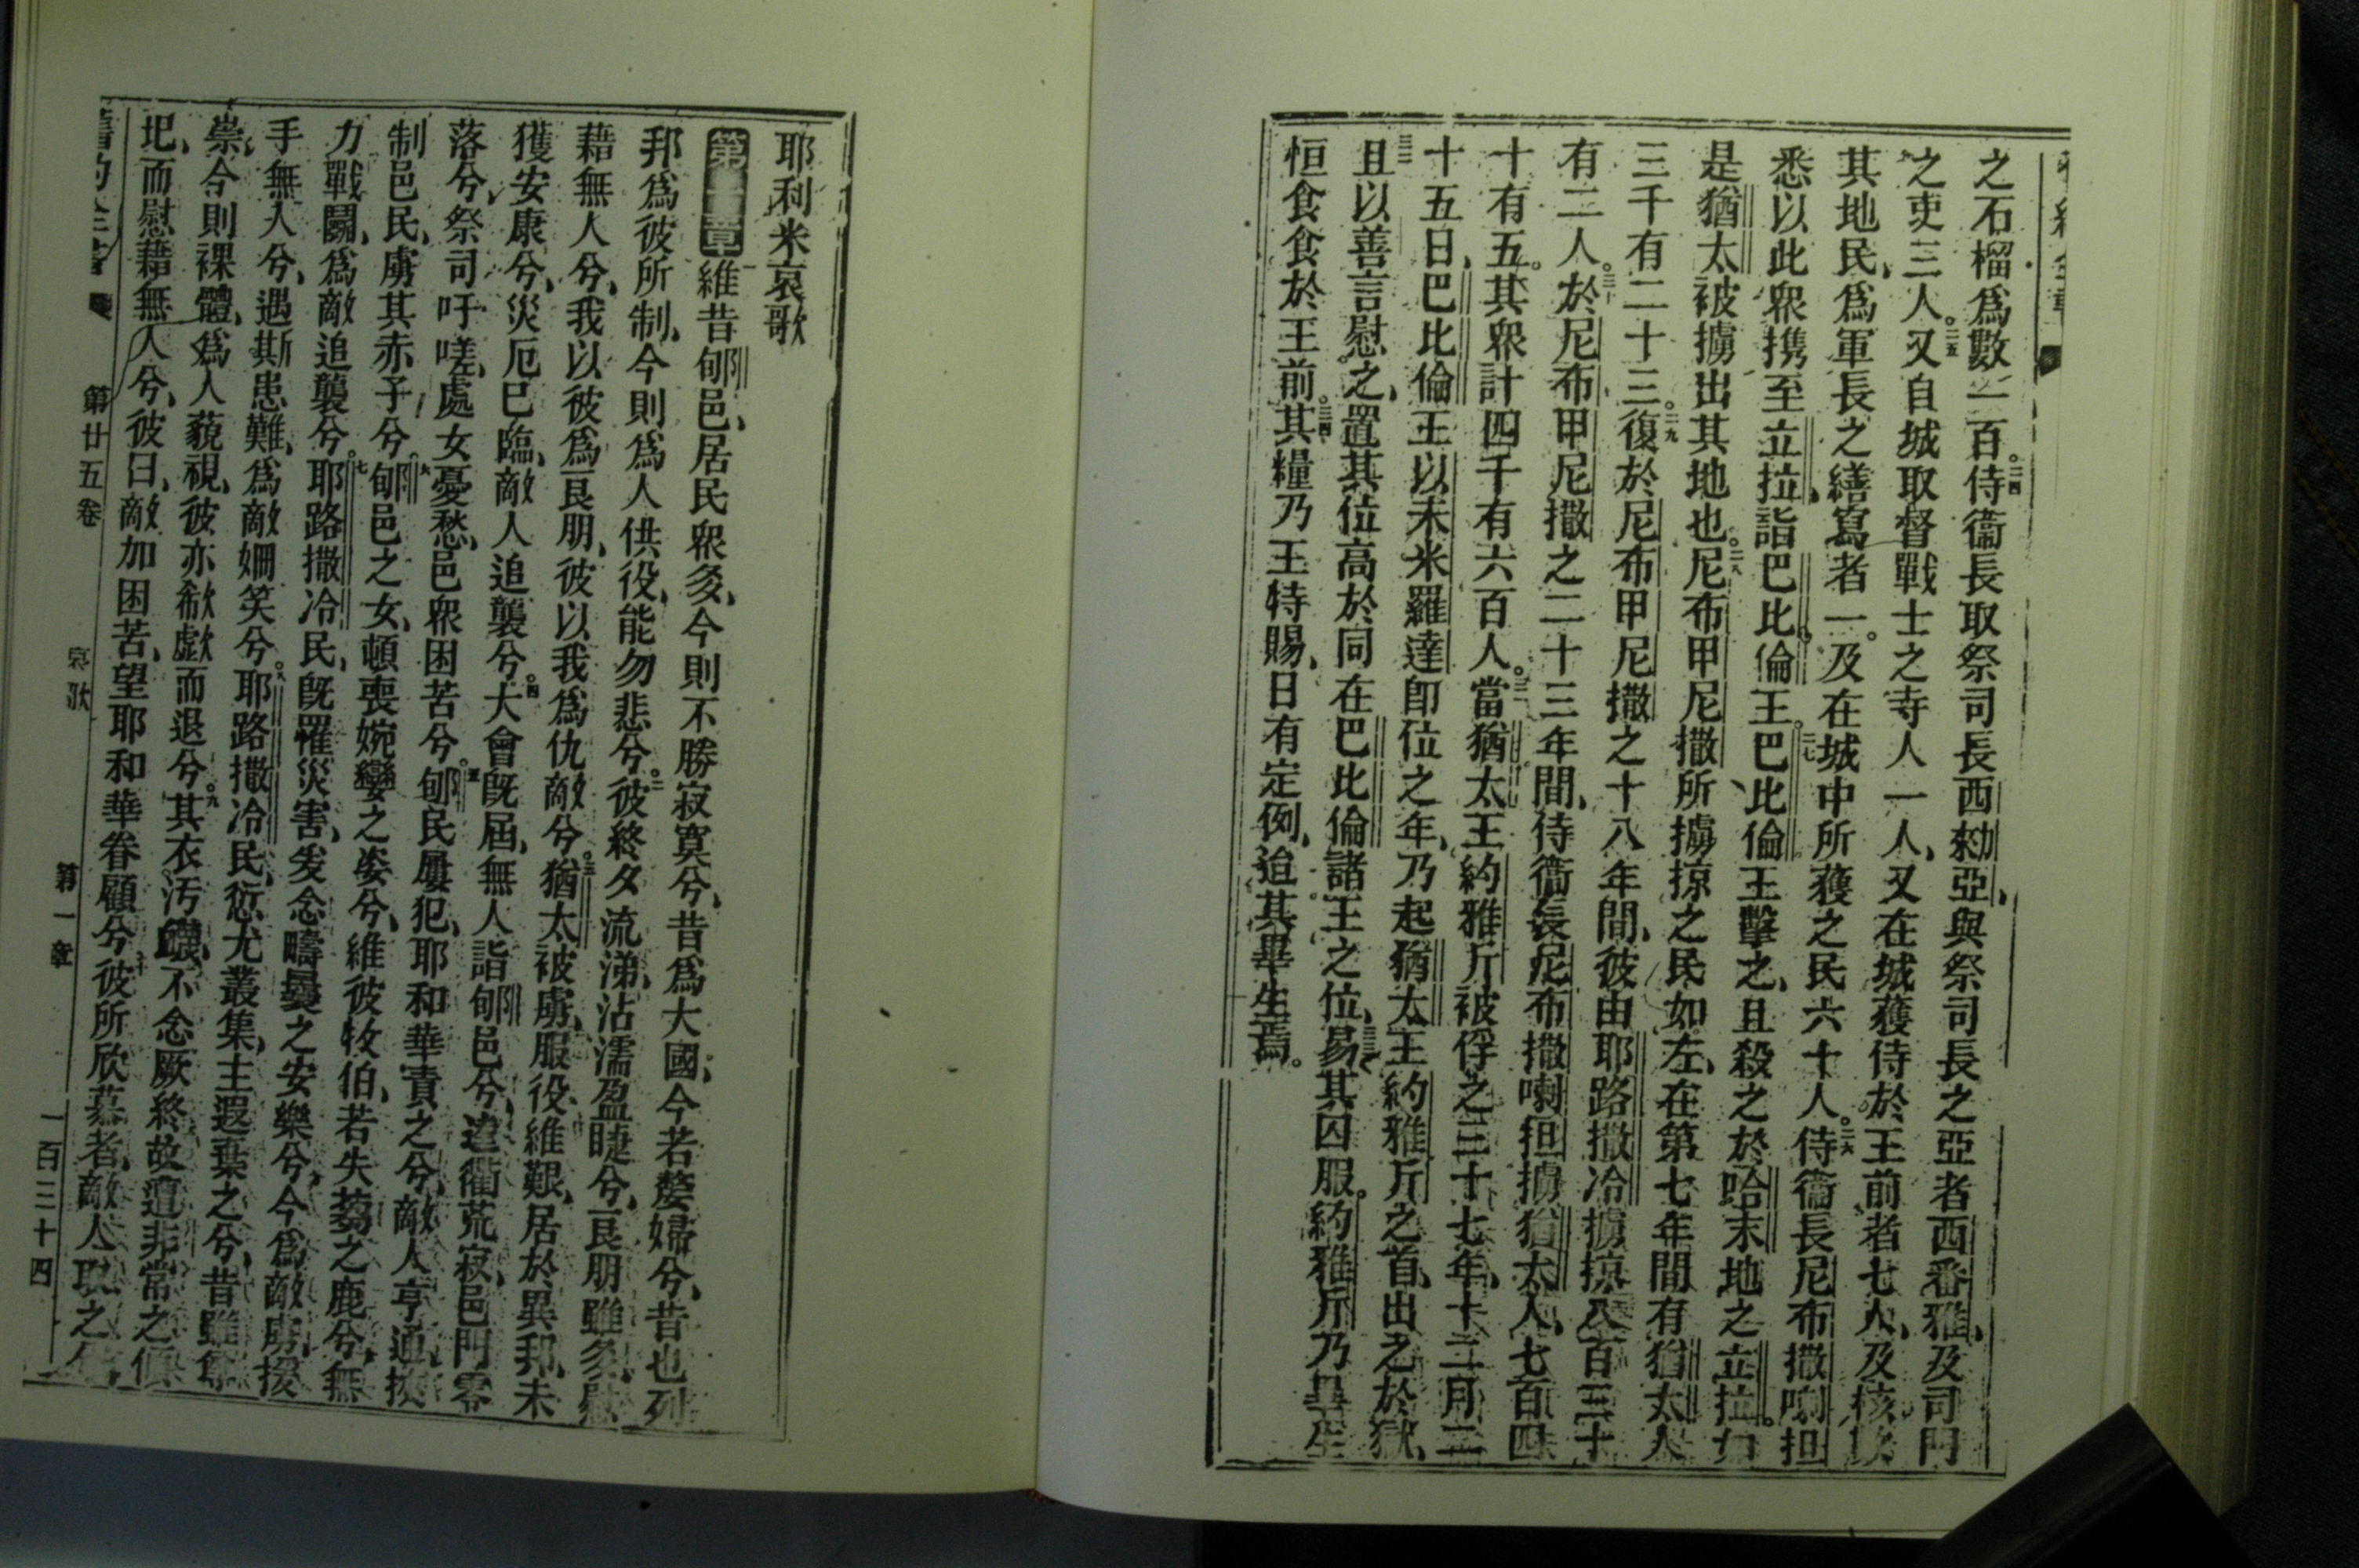 之石榴爲數一百。二四侍衞長取祭司長西𠡠亞、與祭司長之亞者西番雅、及司門
之吏三人。二五又自城取督戰士之寺人一人、又在城獲侍於王前者七人、及核
其地民、爲軍長之繕寫者一。及在城中所獲之民六十人。二六侍衞長尼布撒喇担
悉以此衆攜至立拉、詣巴比倫王。二七巴比倫王擊之、且殺之於哈末地之立拉。如
是猶太被擄出其地也。二八尼布甲尼撒所擄掠之民如左、在第七年間有猶太人
三千有二十三。二九復於尼布甲尼撒之十八年間、彼由耶路撒冷擄掠八百三十
有二人。三十於尼布甲尼撒之二十三年間、侍衞長尼布撒喇担擄猶太人、七百四
十有五。其衆計四千有六百人。三一當猶太王約雅斤被俘之三十七年、十二月二
十五日、巴比倫王以未米羅達卽位之年、乃起猶太王約雅斤之首、出之於獄、
三二且以善言慰之、置其位高於同在巴比倫諸王之位、三三易其囚服。約雅斤乃畢生
恒食食於王前。三四其糧乃王特賜、日有定例、迨其畢生焉。
耶利米哀歌
第一章維昔郇邑、居民衆多、今則不勝寂寞兮、昔爲大國、今若嫠婦兮、昔也列
邦爲彼所制、今則爲人供役、能勿悲兮。二彼終夕流涕、沾濡盈睫兮、良朋雖多、慰
藉無人兮、我以彼爲良朋、彼以我爲仇敵兮。三猶太被虜、服役維艱、居於異邦、未
獲安康兮、災厄已臨、敵人追襲兮。四大會旣屆、無人詣郇邑兮、逵衢荒寂、邑門零
落兮、祭司吁嗟、處女憂愁、邑衆困苦兮。五郇民屢犯、耶和華責之兮、敵人亨通、挾
制邑民、虜其赤子兮。六郇邑之女、頓喪婉孌之姿兮、維彼牧伯、若失芻之鹿兮、無
力戰鬭、爲敵追襲兮。七耶路撒冷民、旣罹災害、爰念疇曩之安樂兮、今爲敵虜、援
手無人兮、遇斯患難、爲敵姍笑兮。八耶路撒冷民、愆尤叢集、主遐棄之兮、昔雖尊
崇、今則裸體、爲人藐視、彼亦欷歔而退兮。九其衣汚衊、不念厥終、故遭非常之傾
圯、而慰藉無人兮、彼曰、敵加困苦、望耶和華眷顧兮。十彼所欣慕者、敵人取之
舊約全書 第廿五卷 哀歌 第一章 一百三十四